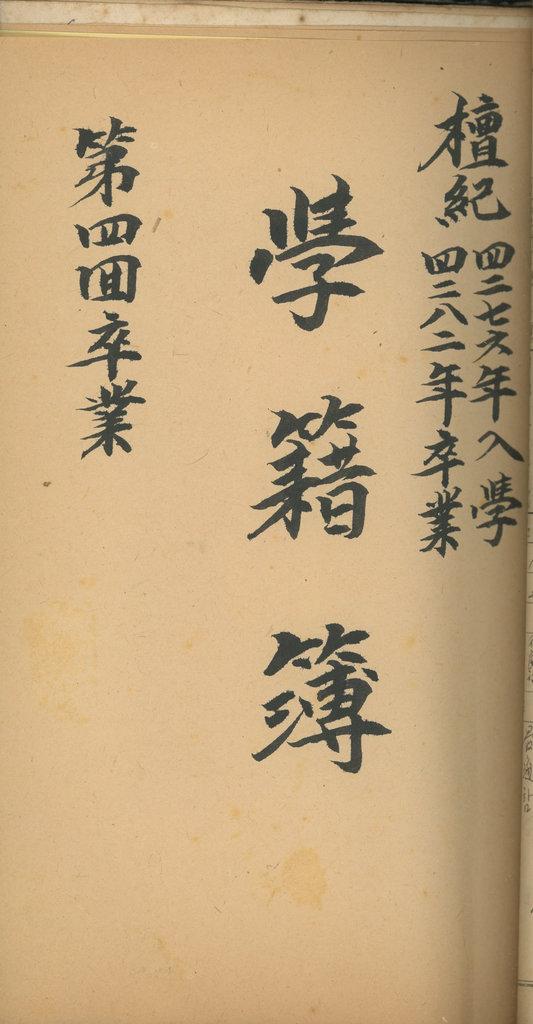 檀紀
四二七六年入學
四二八二年卒業
學籍簿
第四回卒業